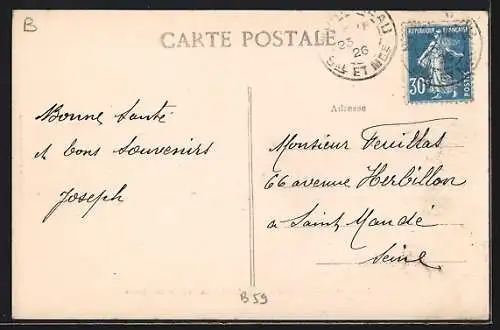 B
CARTE POSTALE
EAU
23
26
ET MSE
REPUBLIQUE FRANÇAISE
30
POSTES
Adresse
Bonne Santé
et bons Souvenirs
Joseph
Monsieur Feuillas
66 avenue Herbillon
a Saint Mandé
Seine
B 59